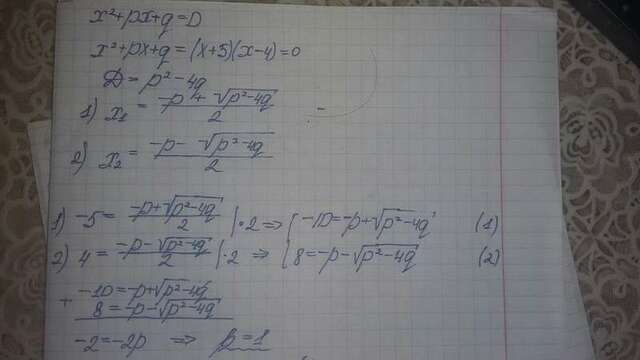 x²+px+q=0
x²+px+q=(x+5)(x-4)=0
D=p²-4q
1) x₁ = (-p+√(p²-4q))/2
2) x₂ = (-p-√(p²-4q))/2
1) -5 = (-p+√(p²-4q))/2 |·2 ⇒ { -10=-p+√(p²-4q) (1)
2) 4 = (-p-√(p²-4q))/2 |·2 ⇒ { 8=-p-√(p²-4q) (2)
+ -10=-p+√(p²-4q)
8=-p-√(p²-4q)
-2=-2p ⇒ p=1